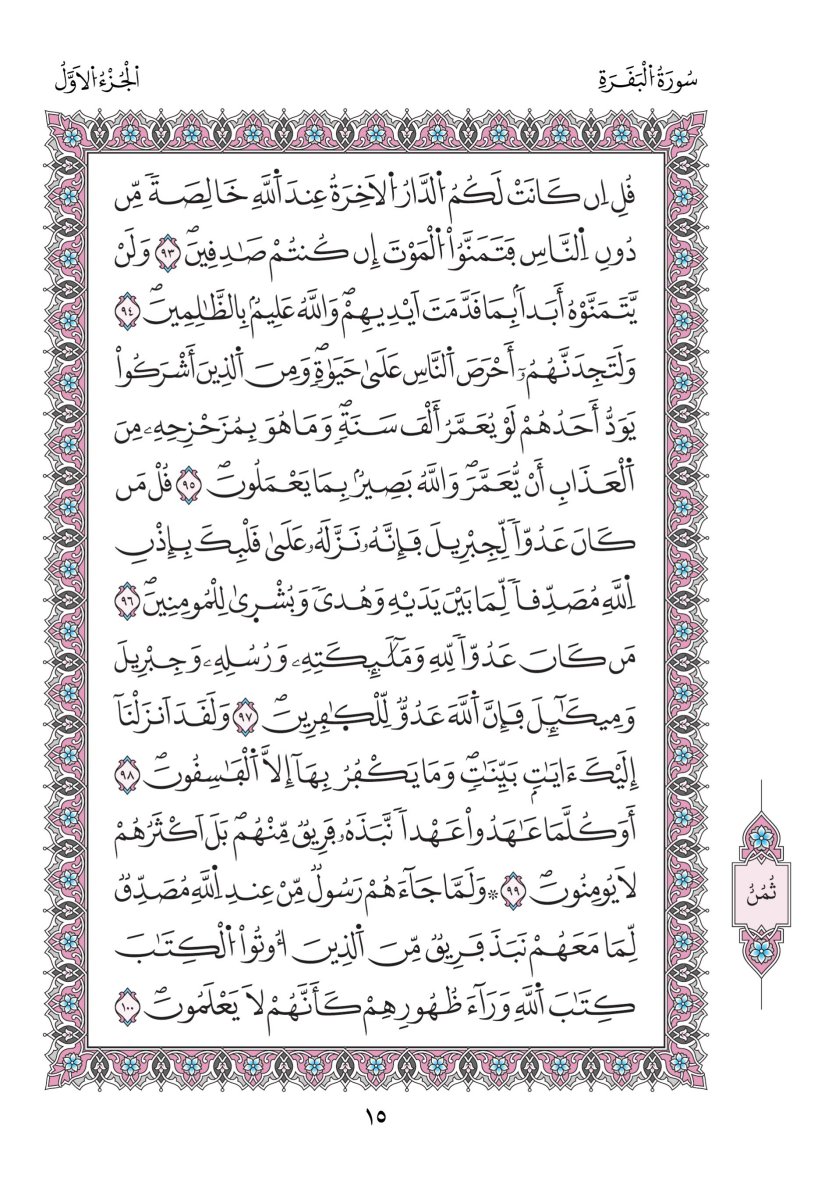 سُورَةُ اُ۬لْبَقَرَةِ
اُ۬لْجُزْءُ اُ۬لَاوَّلُ
قُلِ اِن كَانَتْ لَكُمُ اُ۬لدَّارُ اُ۬لَاخِرَةُ عِندَ اَ۬للَّهِ خَالِصَةٗ مِّن
دُونِ اِ۬لنَّاسِ فَتَمَنَّوُاْ اُ۬لْمَوْتَ إِن كُنتُمْ صَٰدِقِينَۖ ٩٣ وَلَنْ
يَّتَمَنَّوْهُ أَبَداَۢ بِمَا قَدَّمَتَ اَيْدِيهِمْۖ وَاللَّهُ عَلِيمُۢ بِالظَّٰلِمِينَۖ ٩٤
وَلَتَجِدَنَّهُمُۥٓ أَحْرَصَ اَ۬لنَّاسِ عَلَىٰ حَيَوٰةٖۖ وَمِنَ اَ۬لذِينَ أَشْرَكُواْ
يَوَدُّ أَحَدُهُمْ لَوْ يُعَمَّرُ أَلْفَ سَنَةٖۖ وَمَا هُوَ بِمُزَحْزِحِهِۦ مِنَ
اَ۬لْعَذَابِ أَنْ يُّعَمَّرَۖ وَاللَّهُ بَصِيرُۢ بِمَا يَعْمَلُونَۖ ٩٥ قُلْ مَن
كَانَ عَدُوّاٗ لِّجِبْرِيلَ فَإِنَّهُۥ نَزَّلَهُۥ عَلَىٰ قَلْبِكَ بِإِذْنِ
اِ۬للَّهِ مُصَدِّقاٗ لِّمَا بَيْنَ يَدَيْهِ وَهُدىٗ وَبُشْر۪ىٰ لِلْمُومِنِينَۖ ٩٦
مَن كَانَ عَدُوّاٗ لِّلهِ وَمَلَٰٓئِكَتِهِۦ وَرُسُلِهِۦ وَجِبْرِيلَ
وَمِيكَآئِلَ فَإِنَّ اَ۬للَّهَ عَدُوّٞ لِّلْكٰ۪فِرِينَۖ ٩٧ وَلَقَدَ اَنزَلْنَآ
إِلَيْكَ ءَايَٰتِۢ بَيِّنَٰتٖۖ وَمَا يَكْفُرُ بِهَآ إِلَّا اَ۬لْفَٰسِقُونَۖ ٩٨
أَوَكُلَّمَا عَٰهَدُواْ عَهْداٗ نَّبَذَهُۥ فَرِيقٞ مِّنْهُمۖ بَلَ اَكْثَرُهُمْ
لَا يُومِنُونَۖ ٩٩ ۞وَلَمَّا جَآءَهُمْ رَسُولٞ مِّنْ عِندِ اِ۬للَّهِ مُصَدِّقٞ
لِّمَا مَعَهُمْ نَبَذَ فَرِيقٞ مِّنَ اَ۬لذِينَ أُوتُواْ اُ۬لْكِتَٰبَ
كِتَٰبَ اَ۬للَّهِ وَرَآءَ ظُهُورِهِمْ كَأَنَّهُمْ لَا يَعْلَمُونَۖ ١٠٠
ثُمُنُ
١٥